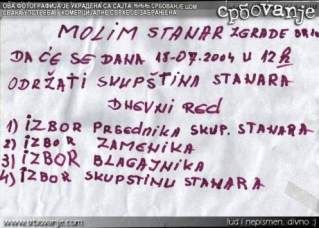 ОВА ФОТОГРАФИЈА ЈЕ УКРАДЕНА СА САЈТА WWW.СРБОВАЊЕ.COM
СВАКА УПОТРЕБА У КОМЕРЦИЈАЛНЕ СВРХЕ ЈЕ ЗАБРАЊЕНА
србовање
MOLIM STANAR ZGRADE
DA ĆE SE DANA 18-07.2004 U 12
ODRŽATI SKUPŠTINA STANARA
DNEVNI RED
1) IZBOR PRSEDNIKA SKUP. STANARA
2) IZBOR ZAMENIKA
3) IZBOR BLAGAJNIKA
4) IZBOR SKUPSTINU STANARA
www.србовање.com
lud i nepismen, divno :)